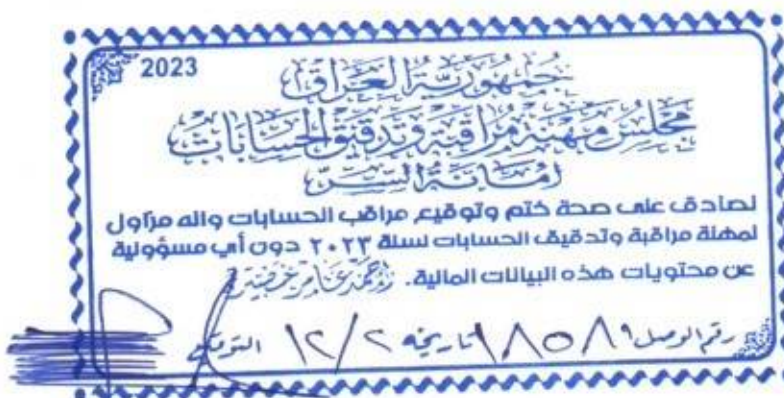 2023
جمهورية العراق
مجلس مهنة مراقبة وتدقيق الحسابات
امانة السر
نصادق على صحة ختم وتوقيع مراقب الحسابات وانه مزاول
لمهنة مراقبة وتدقيق الحسابات لسنة ٢٠٢٣ دون أي مسؤولية
عن محتويات هذه البيانات المالية.
رقم الوصل ١٨٥٨٩ تاريخه ١٢/٢ التوقيع